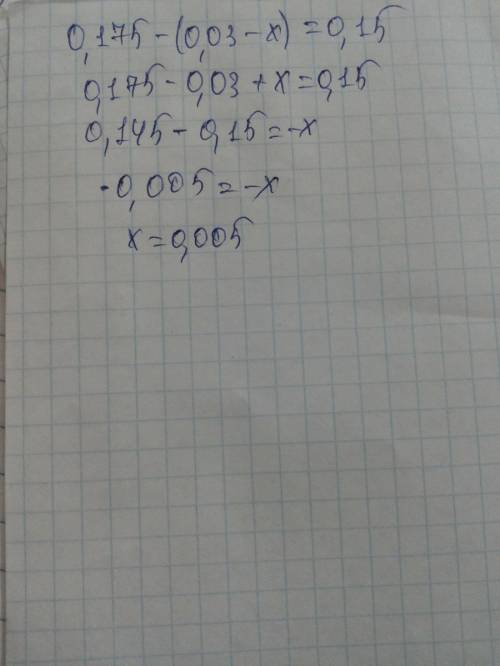 0,175-(0,03-x)=0,15
0,175-0,03+x=0,15
0,145-0,15=-x
-0,005=-x
x=0,005